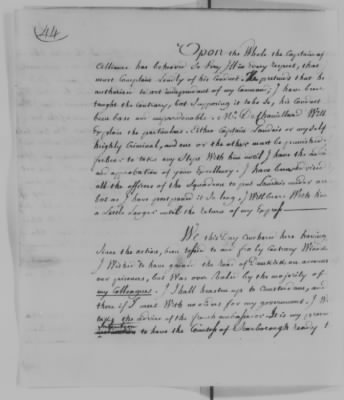 44
Upon the Whole the Captain of
Alliance has behaved so Very Ill in Every respect, that
must Complain Loudly of his Conduct. He pretends that he
authorised to act independant of my Command; I have been
taught the Contrary, but supposing it to be so, his Conduct
been base and unpardonable. M. De Chamillard Will
Explain the particulars. Either Captain Landais or myself
highly Criminal, and one or the other must be punished.
forbear to take any Steps With him until I have the
and approbation of your Excellency. I have been advised
all the officers of the Squadron to put Landais under arr
but as I have postponed it So long, I Will bear With him
a Little Longer until the return of my Express
We this Day anchored here having
Since the action, been tossed to and fro by Contrary Winds.
I Wished to have gained the road of Dunkirk on account
our prisoners, but Was over Ruled by the majority of
my Colleagues. I shall hasten up to Amsterdam, and
there if I meet With no orders for my government, I W
take the advice of the french ambassador. It is my present
intention to have the Countess of Scarborough ready t